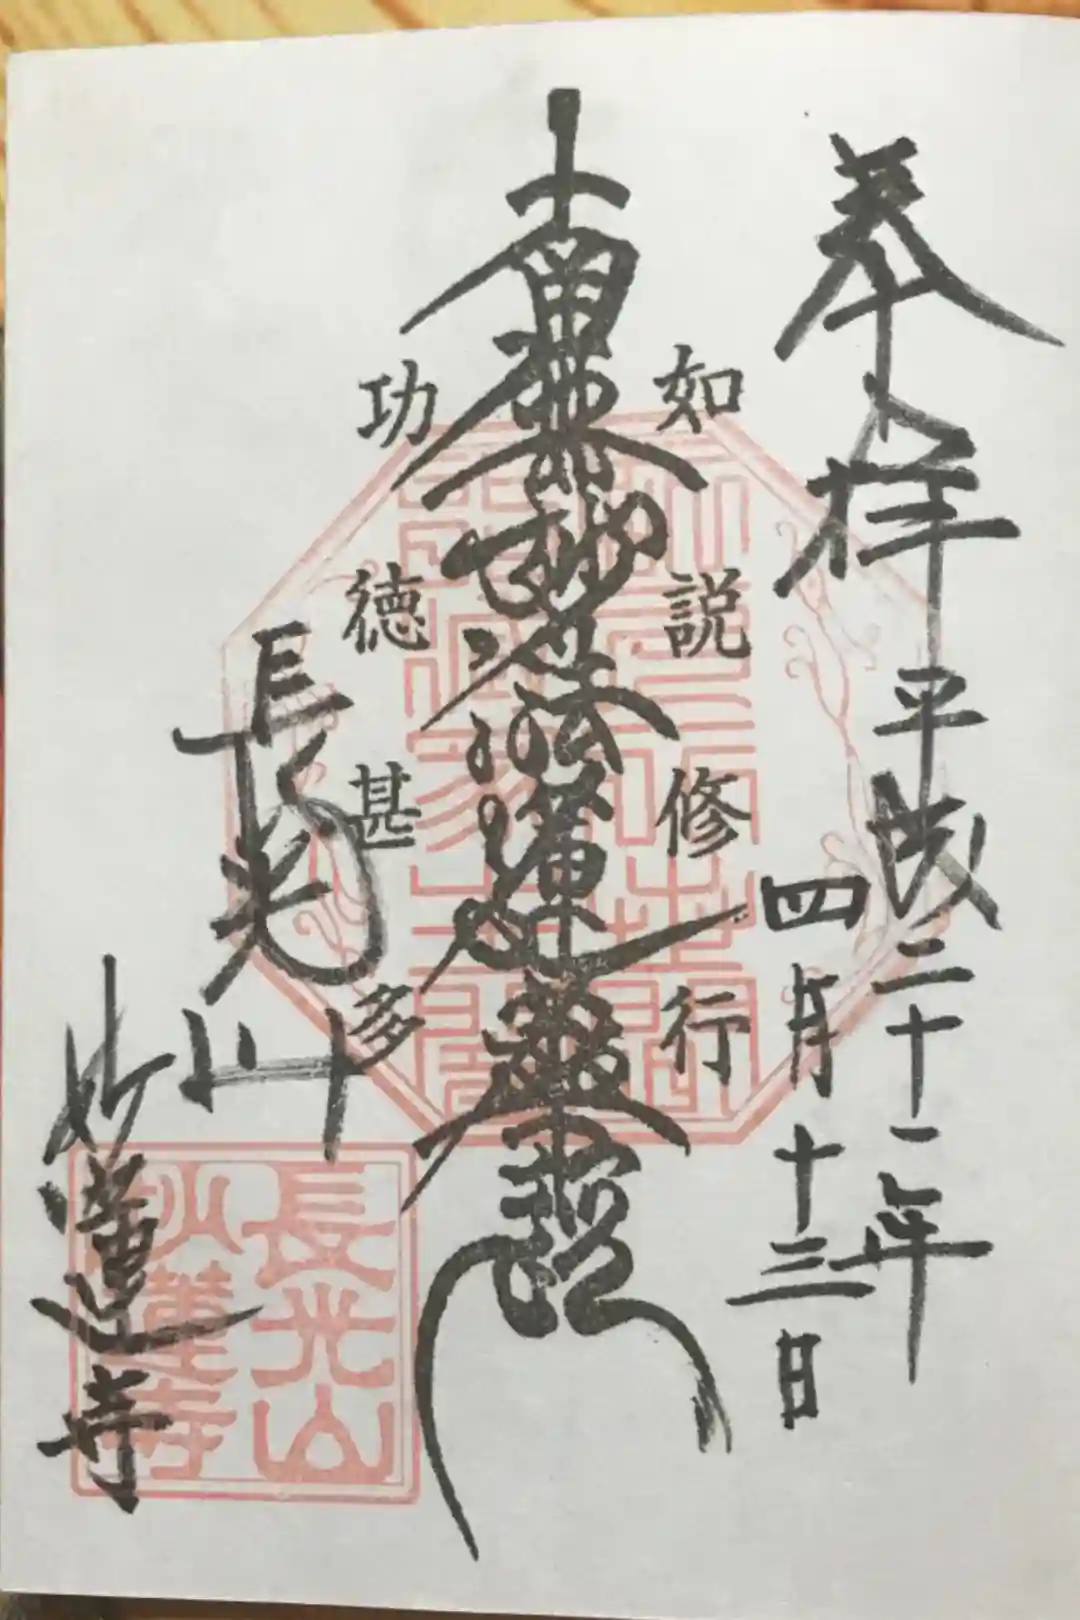 奉拝
平成二十一年
四月十三日
如説修行
南無妙法蓮華経
功徳甚多
長光山
妙蓮寺
長光山
妙蓮寺